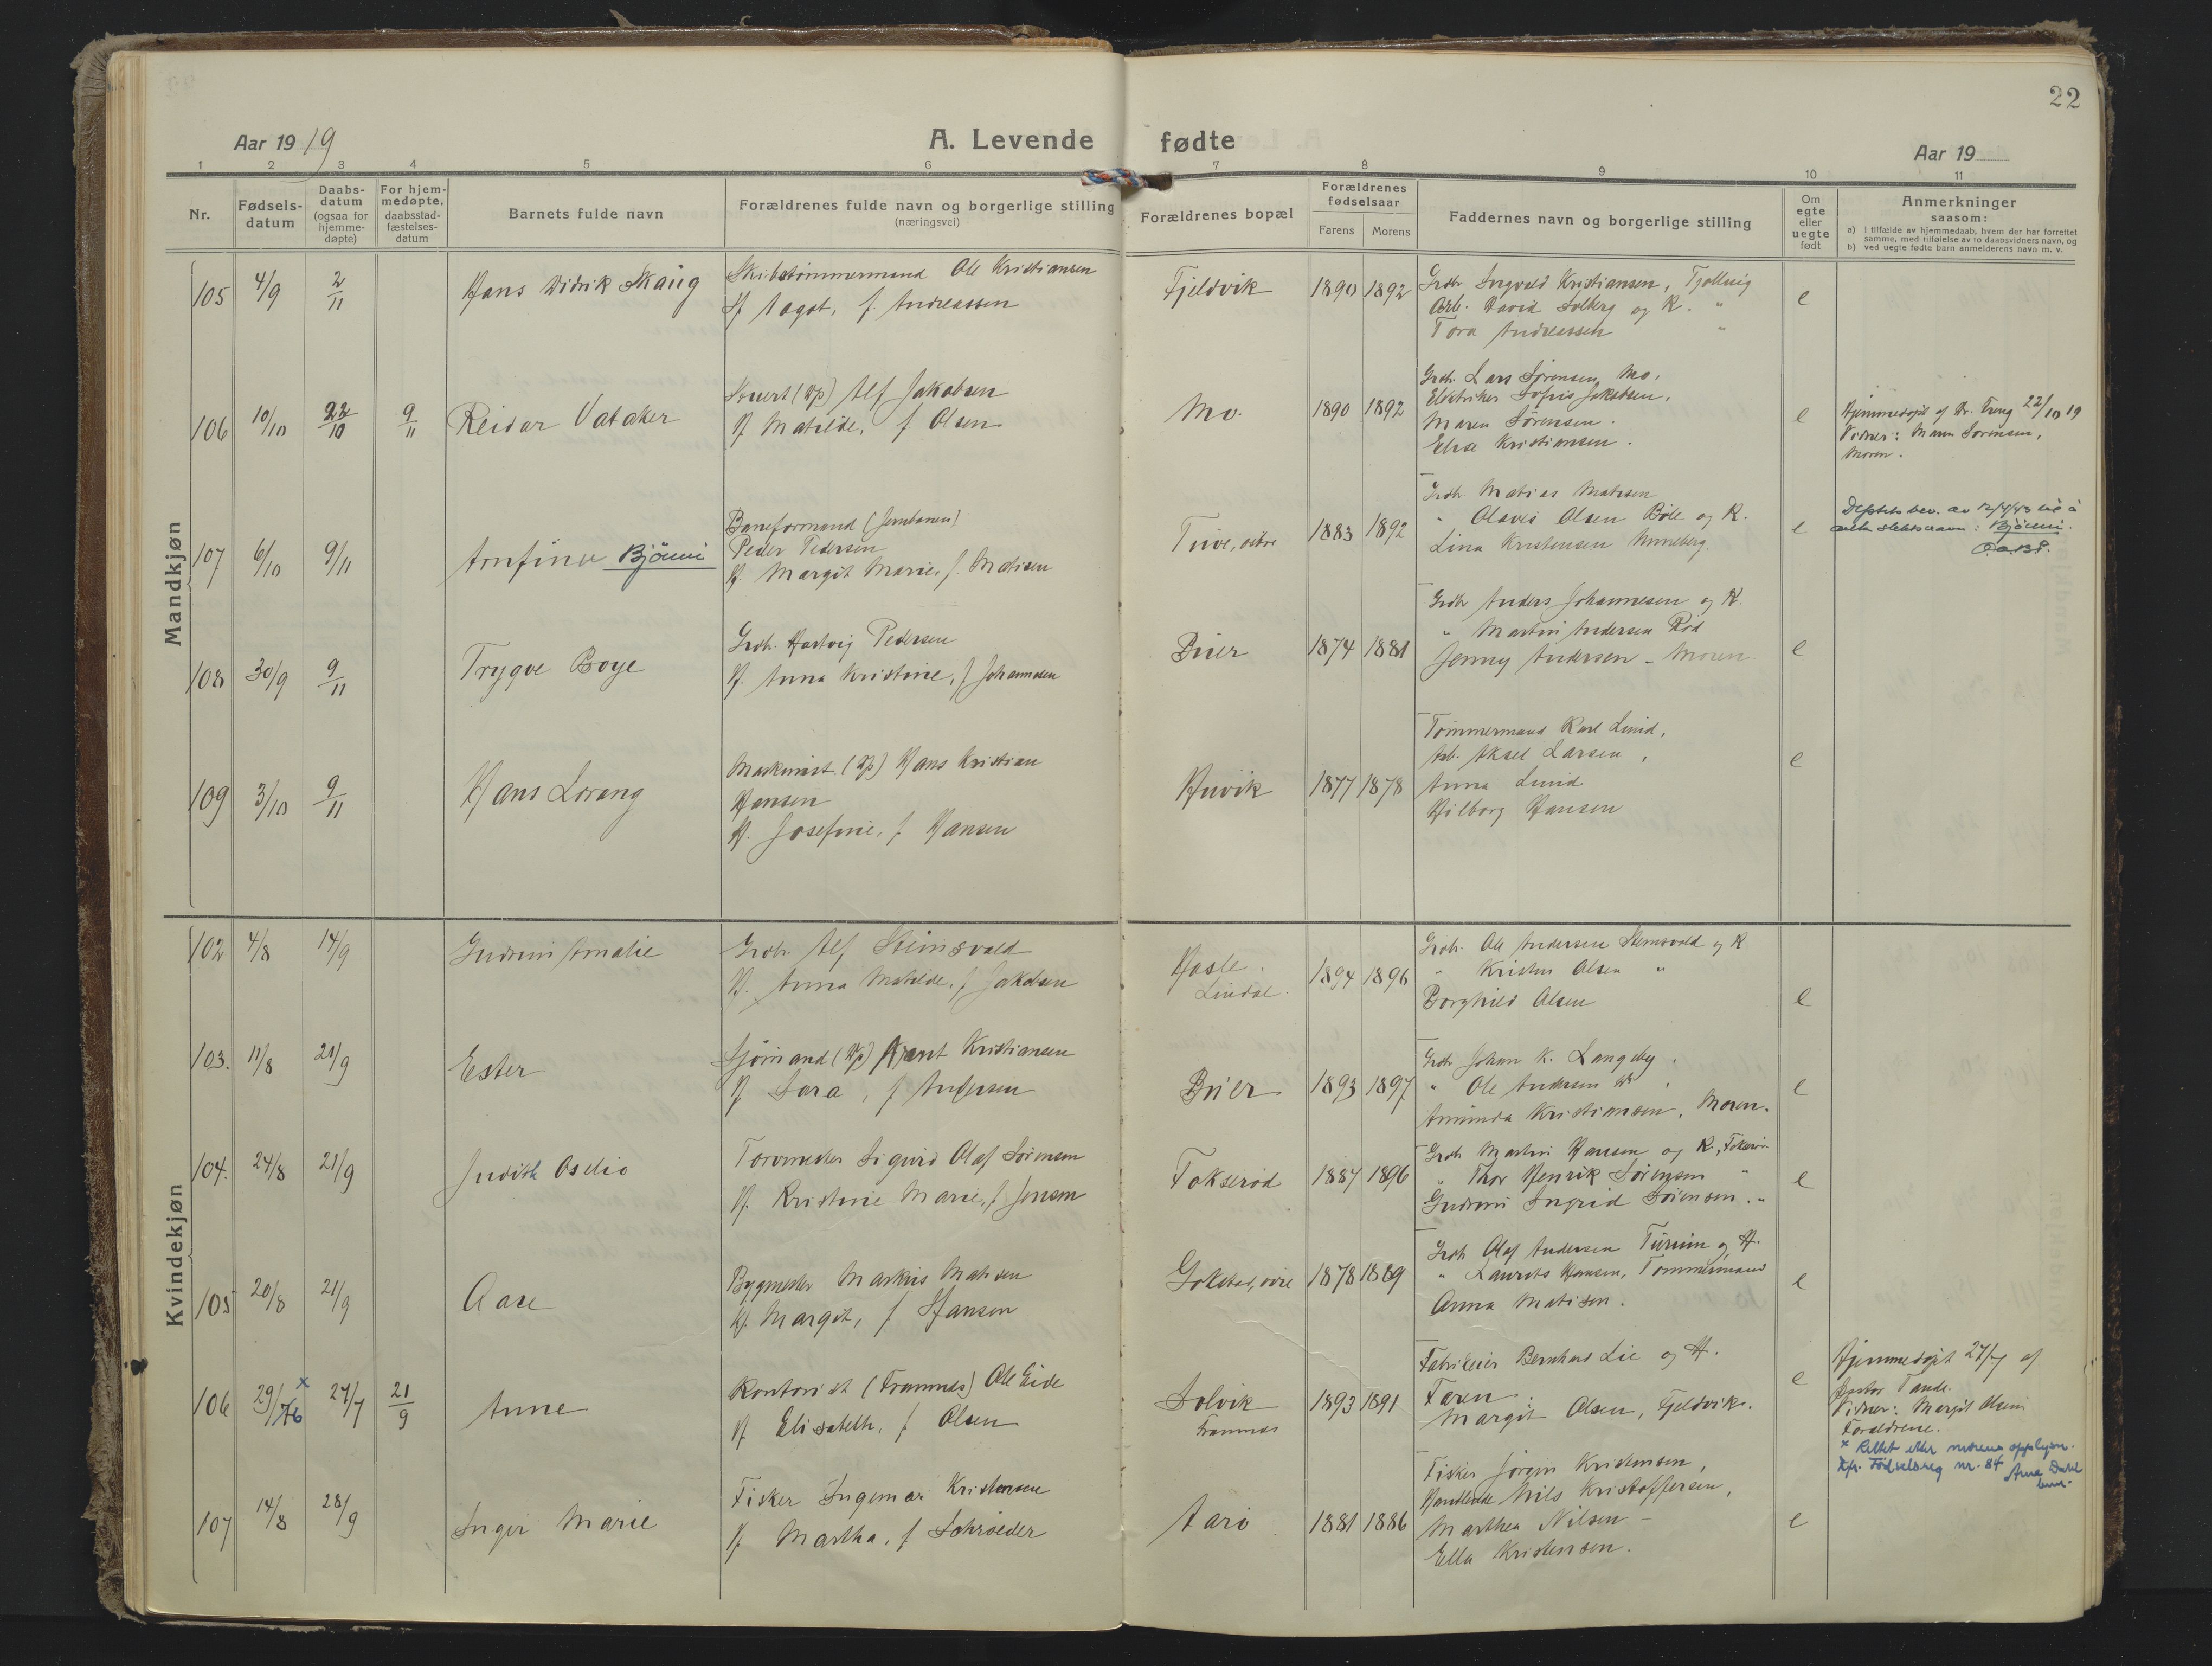 22
Aar 1919
A. Levende fødte
Aar 19
1 2 3 4 5 6 7 8 9 10 11
Nr.
Fødsels-
datum
Daabs-
datum
(ogsaa for
hjemme-
døpte)
For hjem-
medøpte.
daabsstad-
fæstelses-
datum
Barnets fulde navn
Forældrenes fulde navn og borgerlige stilling
(næringsvei)
Forældrenes bopæl
Forældrenes
fødselsaar
Farens Morens
Faddernes navn og borgerlige stilling
Om
egte
eller
uegte
født
Anmerkninger
saasom:
a) i tilfælde av hjemmedaab, hvem der har forrettet
samme, med tilføielse av to daabsvidners navn, og
b) ved uegte fødte barn anmelderens navn m. v.
Mandkjøn
105 4/9 2/11 Hans Didrik Skaug
Skibstømmermand Ole Kristiansen
H Aagot, f. Andreassen
Fjeldvik 1890 1892
Grdbr Ingvald Kristiansen, Tjølling
Arb. David Solberg og K. "
Tora Andreassen "
e
106 10/10 22/10 9/11 Reidar Vataker
Stuert (Hp) Alf Jakobsen
H Matilde, f Olsen
Mo. 1890 1892
Grdbr. Lars Sørensen Mo,
Elektriker Sofus Jakobsen,
Maren Sørensen.
Elise Kristiansen.
e
Hjemmedøpt af Dr. Treng 22/10 19
Vidner: Maren Sørensen,
Moren.
107 6/10 9/11 Arnfinn Bjönni
Baneformand (Jernbanen)
Peder Pedersen
H. Margit Marie, f. Matisen
Tuve, østre 1883 1892
Grdbr. Matias Matisen
" Olaves Olsen Bøle og K.
Lina Kristensen
e
Dep.tets bev. av 12/4/43 til å
anta slektsnavn: Bjönni.
108 30/9 9/11 Trygve Boye
Grdbr. Hartvig Pedersen
H. Anna Kristine, f Johannesen
Brier 1874 1881
Grdbr Anders Johannesen og K.
" Martin Andersen Rød
Jenny Andersen - Moren
e
109 3/10 9/11 Hans Lorang
Maskinist. (Hp) Hans Kristian
Hansen
H. Josefine, f Hansen
Huvik 1877 1878
Tømmermand Karl Lund,
Arb. Aksel Larsen,
Anna Lund
Vilborg Hansen
e
Kvindekjøn
102 4/8 14/9 Gudrun Amalie
Grdbr. Alf Stemsvold
H. Anna Matilde, f Jakobsen
Hasle.
Lindal.
1894 1896
Grdbr. Ole Andersen Stemsvold og K
" Kristen Olsen "
Borghild Olsen
e
103. 11/8 21/9 Ester
Sjømand (Hp) Kristiansen
H Sara, f Andersen
Brier 1893 1897
Grdbr Johan K. Langeby.
" Ole Andersen
Aminda Kristiansen, Moren.
e
104. 24/8 21/9 Judith Oselio
Torvmester Sigurd Olaf Sørensen
H. Kristine Marie, f Jensen
Fokserød 1887 1896
Grdbr Martin Hansen og K, Fokserø.
" Thor Henrik Sørensen "
Gudrun Ingrid Sørensen. "
e
105 20/8 21/9 Aase
Bygmester Markus Matisen
H. Margit, f Hansen
Gokstad, øvre 1878 1889
Grdbr Olaf Andersen Furum og H.
" Laurits Hansen, Tømmermand
Anna Matisen.
e
106 29/6 x 27/7 21/9 Anne
Kontorist (Framnæs) Ole Eide
H Elisabeth, f Olsen
Solvik
Framnæs
1893 1891
Fabrikeier Bernhard Lie og H.
Faren
Margit Olsen, Fjeldvik.
e
Hjemmedøpt 27/7 af
Pastor Tande.
Vidner: Margit Olsen
Forældrene.
x Rettet etter morens opplysn.
Kfr. Fødselsreg nr. 84
107 14/8 28/9 Inger Marie
Fisker Ingemar Kristensen
H Martha, f Schrøeder
Aarø 1881 1886
Fisker Jørgen Kristensen,
Handlende Nils Kristoffersen,
Marthea Nilsen -
Ella Kristensen.
e